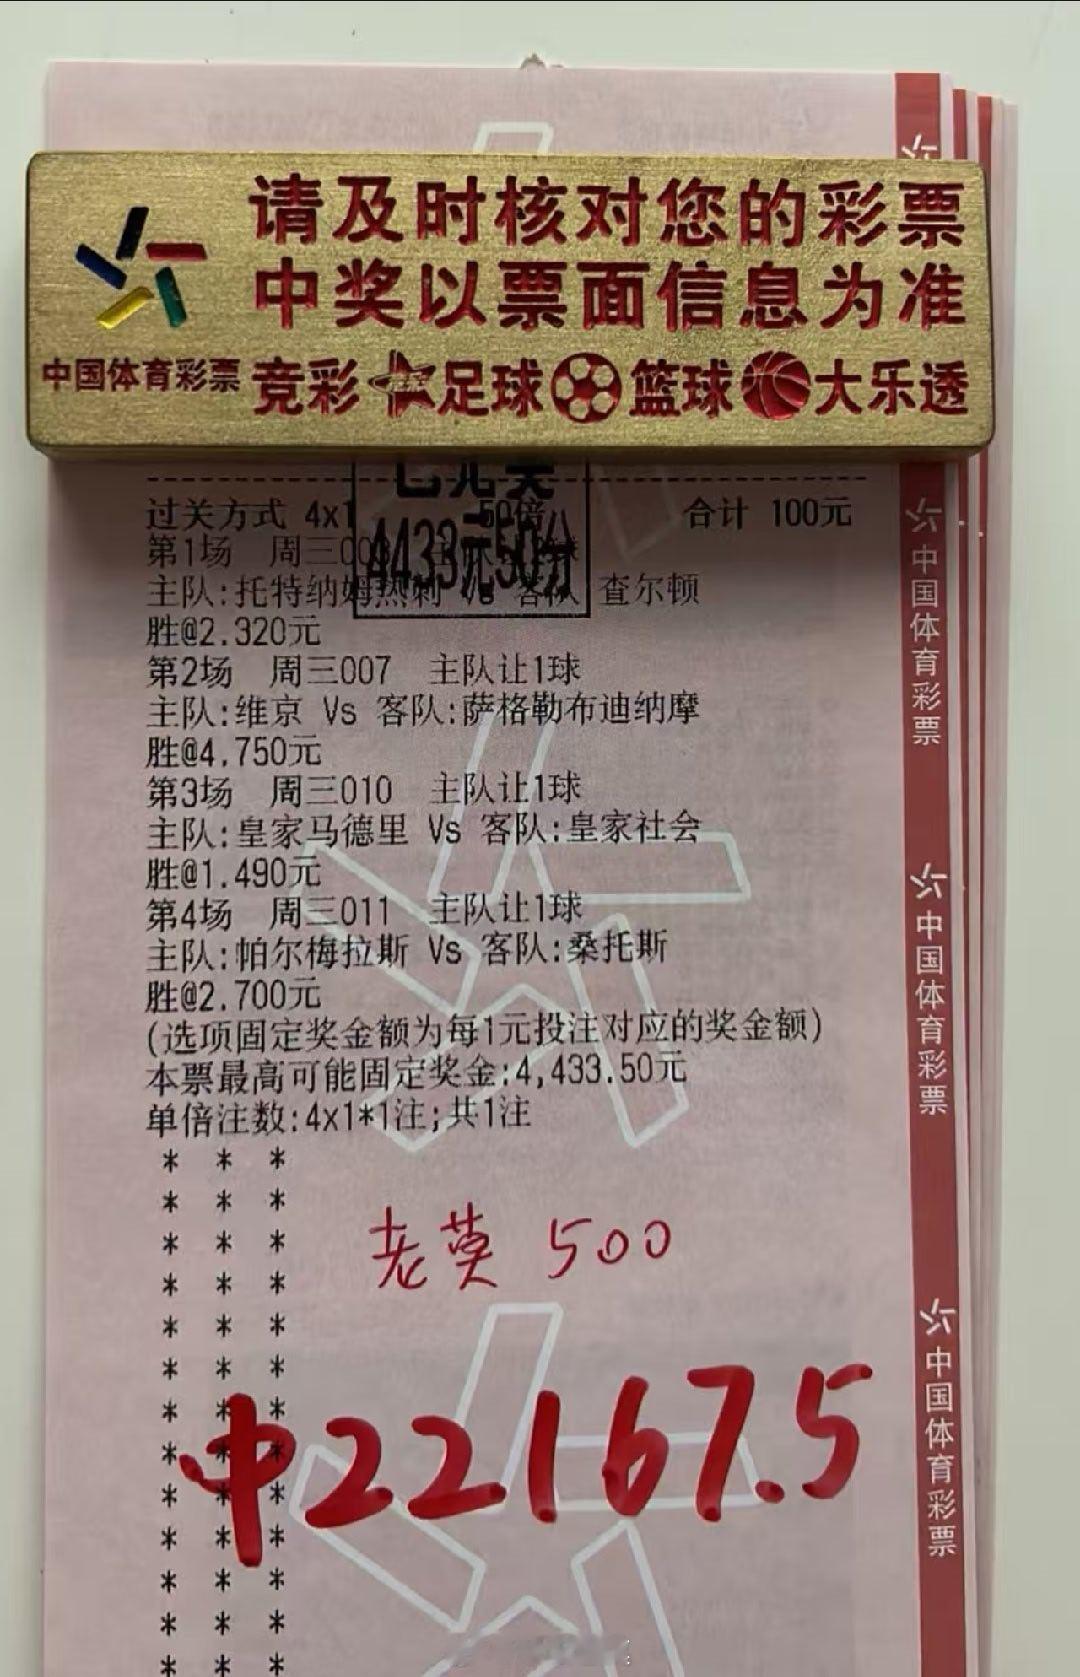 请及时核对您的彩票
中奖以票面信息为准
中国体育彩票 竞彩 足球 篮球 大乐透
过关方式 4x1 50倍 合计 100元
4433元50分
第1场 周三00
主队:托特纳姆热刺 Vs 客队 查尔顿
胜@2.320元
第2场 周三007 主队让1球
主队:维京 Vs 客队:萨格勒布迪纳摩
胜@4.750元
第3场 周三010 主队让1球
主队:皇家马德里 Vs 客队:皇家社会
胜@1.490元
第4场 周三011 主队让1球
主队:帕尔梅拉斯 Vs 客队:桑托斯
胜@2.700元
(选项固定奖金额为每1元投注对应的奖金额)
本票最高可能固定奖金:4,433.50元
单倍注数:4x1*1注;共1注
* * *
* * *
* * *
* * *
* * *
* * *
* * *
* * *
* * *
* * *
* * *
* * *
* * *
老莫 500
中22167.5
中国体育彩票
中国体育彩票
中国体育彩票